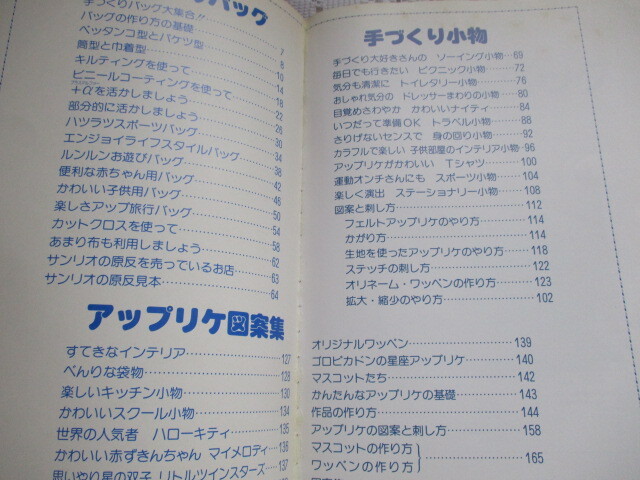 バッグ
手づくりバッグ大集合!!
バッグの作り方の基礎……7
ペッタンコ型とバケツ型……8
筒型と巾着型……10
キルティングを使って……14
ビニールコーティングを使って……18
+αを活かしましょう……22
部分的に活かしましょう……26
ハツラツスポーツバッグ……30
エンジョイライフスタイルバッグ……34
ルンルンお遊びバッグ……38
便利な赤ちゃん用バッグ……42
かわいい子供用バッグ……46
楽しさアップ旅行バッグ……50
カットクロスを使って……54
あまり布も利用しましょう……58
サンリオの原反を売っているお店……62
サンリオの原反見本……63
64
アップリケ図案集
すてきなインテリア……127
べんりな袋物……128
楽しいキッチン小物……130
かわいいスクール小物……134
世界の人気者 ハローキティ……135
かわいい赤ずきんちゃん マイメロディ……136
思いやり星の双子 リトルツインスターズ……137
手づくり小物
手づくり大好きさんの ソーイング小物…69
毎日でも行きたい ピクニック小物……72
気分も清潔に トイレタリー小物……76
おしゃれ気分の ドレッサーまわりの小物……80
目覚めさわやか かわいいナイティ……84
いつだって準備OK トラベル小物……88
さりげないセンスで 身の回り小物……92
カラフルで楽しい 子供部屋のインテリア小物…96
アップリケがかわいい Tシャツ……100
運動オンチさんにも スポーツ小物……104
楽しく演出 ステーショナリー小物……108
図案と刺し方……112
フェルトアップリケのやり方……114
かがり方……114
生地を使ったアップリケのやり方……118
ステッチの刺し方……122
オリネーム・ワッペンの作り方……123
拡大・縮少のやり方……102
オリジナルワッペン……139
ゴロピカドンの星座アップリケ……140
マスコットたち……142
かんたんなアップリケの基礎……143
作品の作り方……144
アップリケの図案と刺し方……158
マスコットの作り方
ワッペンの作り方}……165